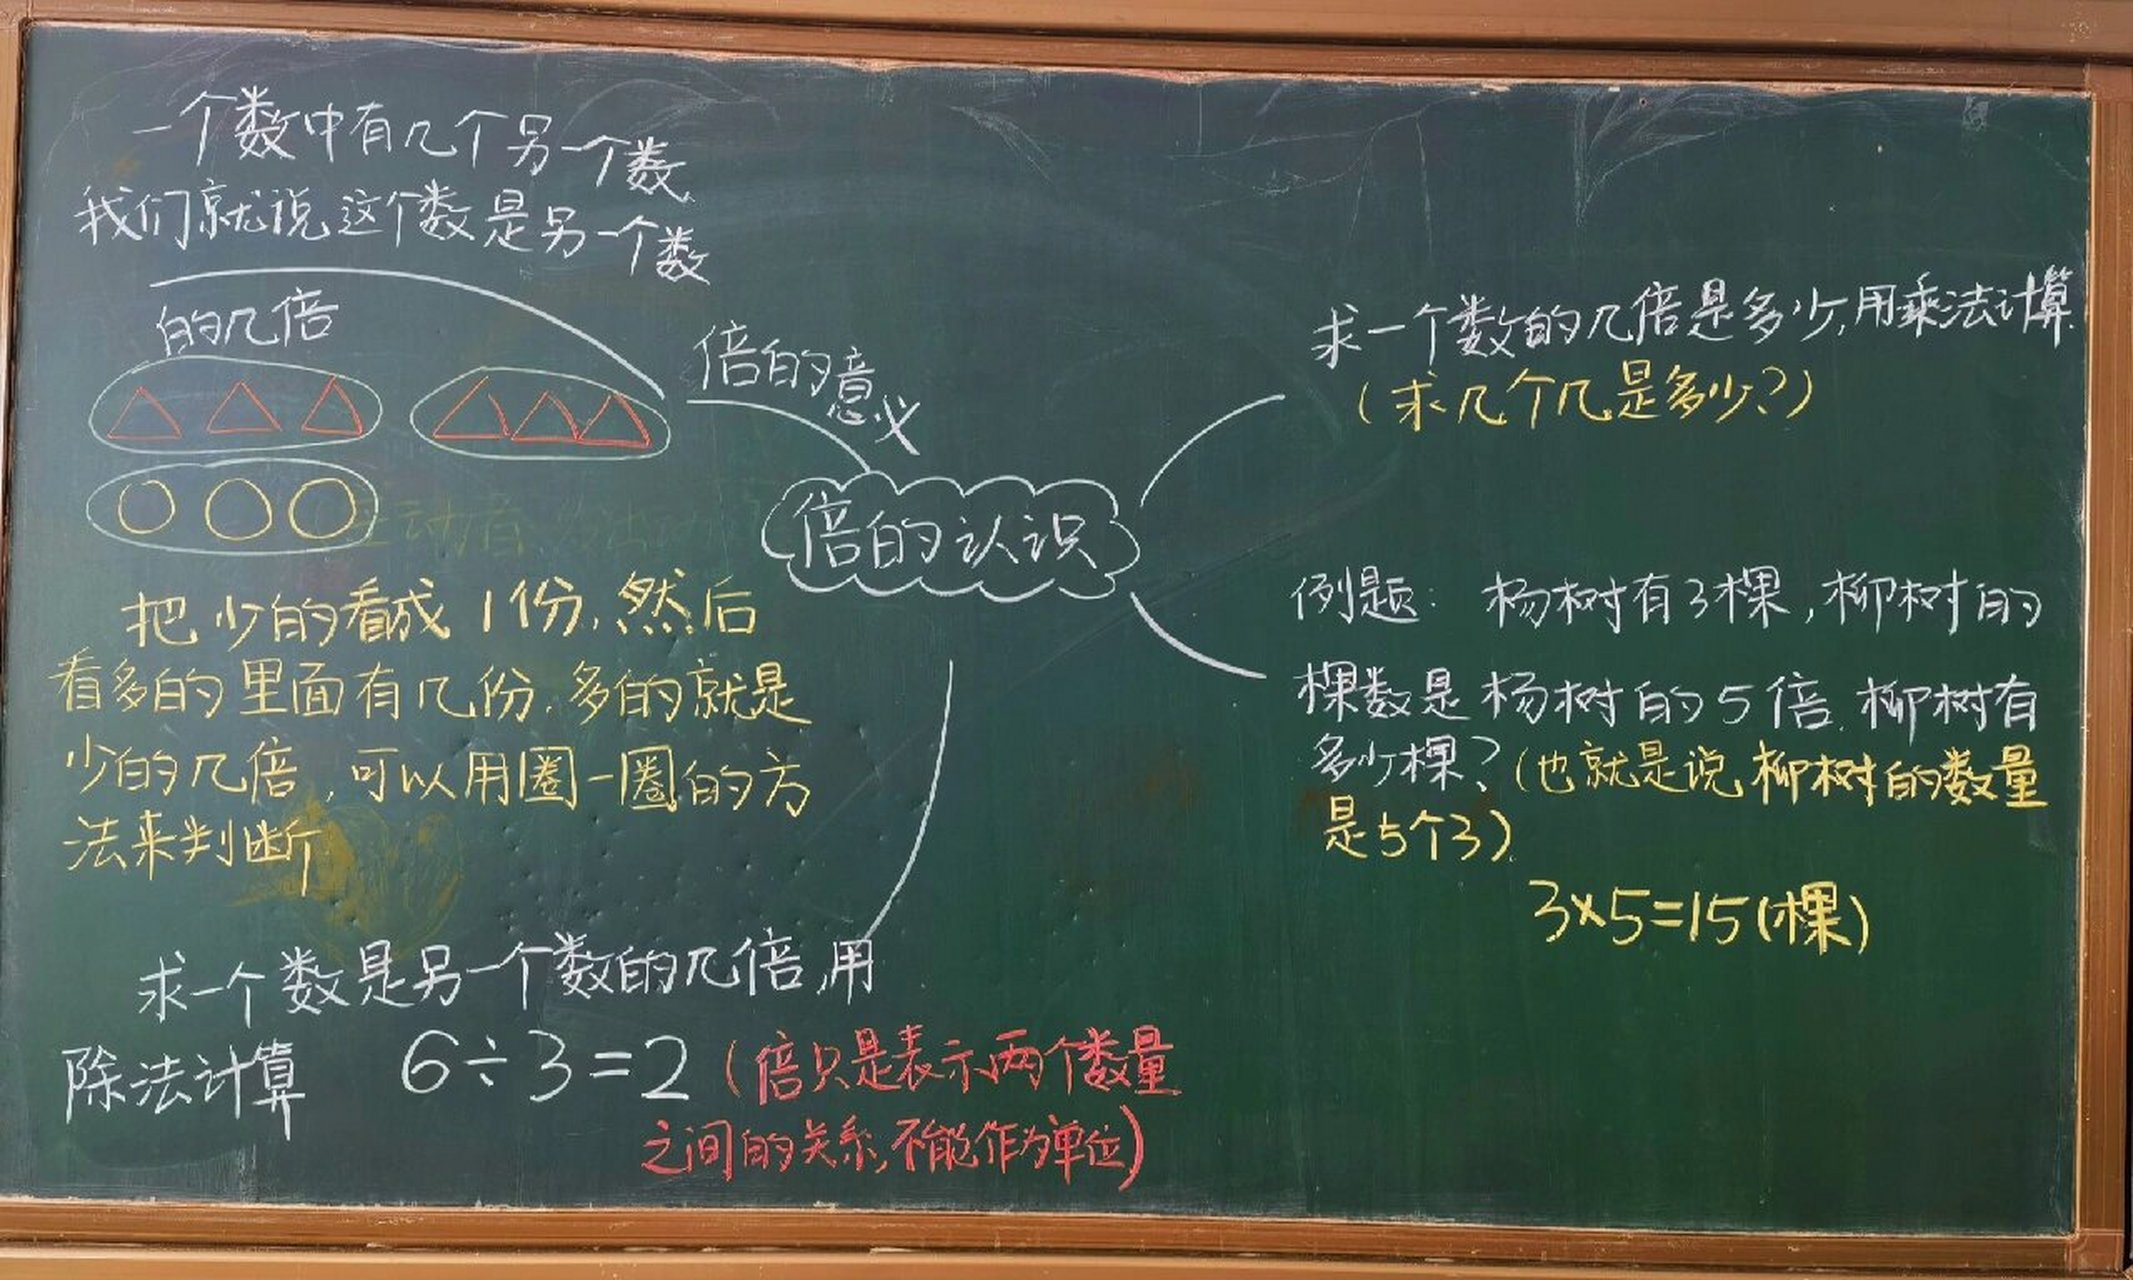 一个数中有几个另一个数
我们就说这个数是另一个数
的几倍
倍的意义
倍的认识
把少的看成1份,然后
看多的里面有几份,多的就是
少的几倍,可以用圈一圈的方
法来判断
求一个数是另一个数的几倍,用
除法计算 6÷3=2 (倍只是表示两个数量
之间的关系,不能作为单位)
求一个数的几倍是多少,用乘法计算
(求几个几是多少?)
例题: 杨树有3棵,柳树的
棵数是杨树的5倍,柳树有
多少棵?(也就是说,柳树的数量
是5个3)
3×5=15(棵)